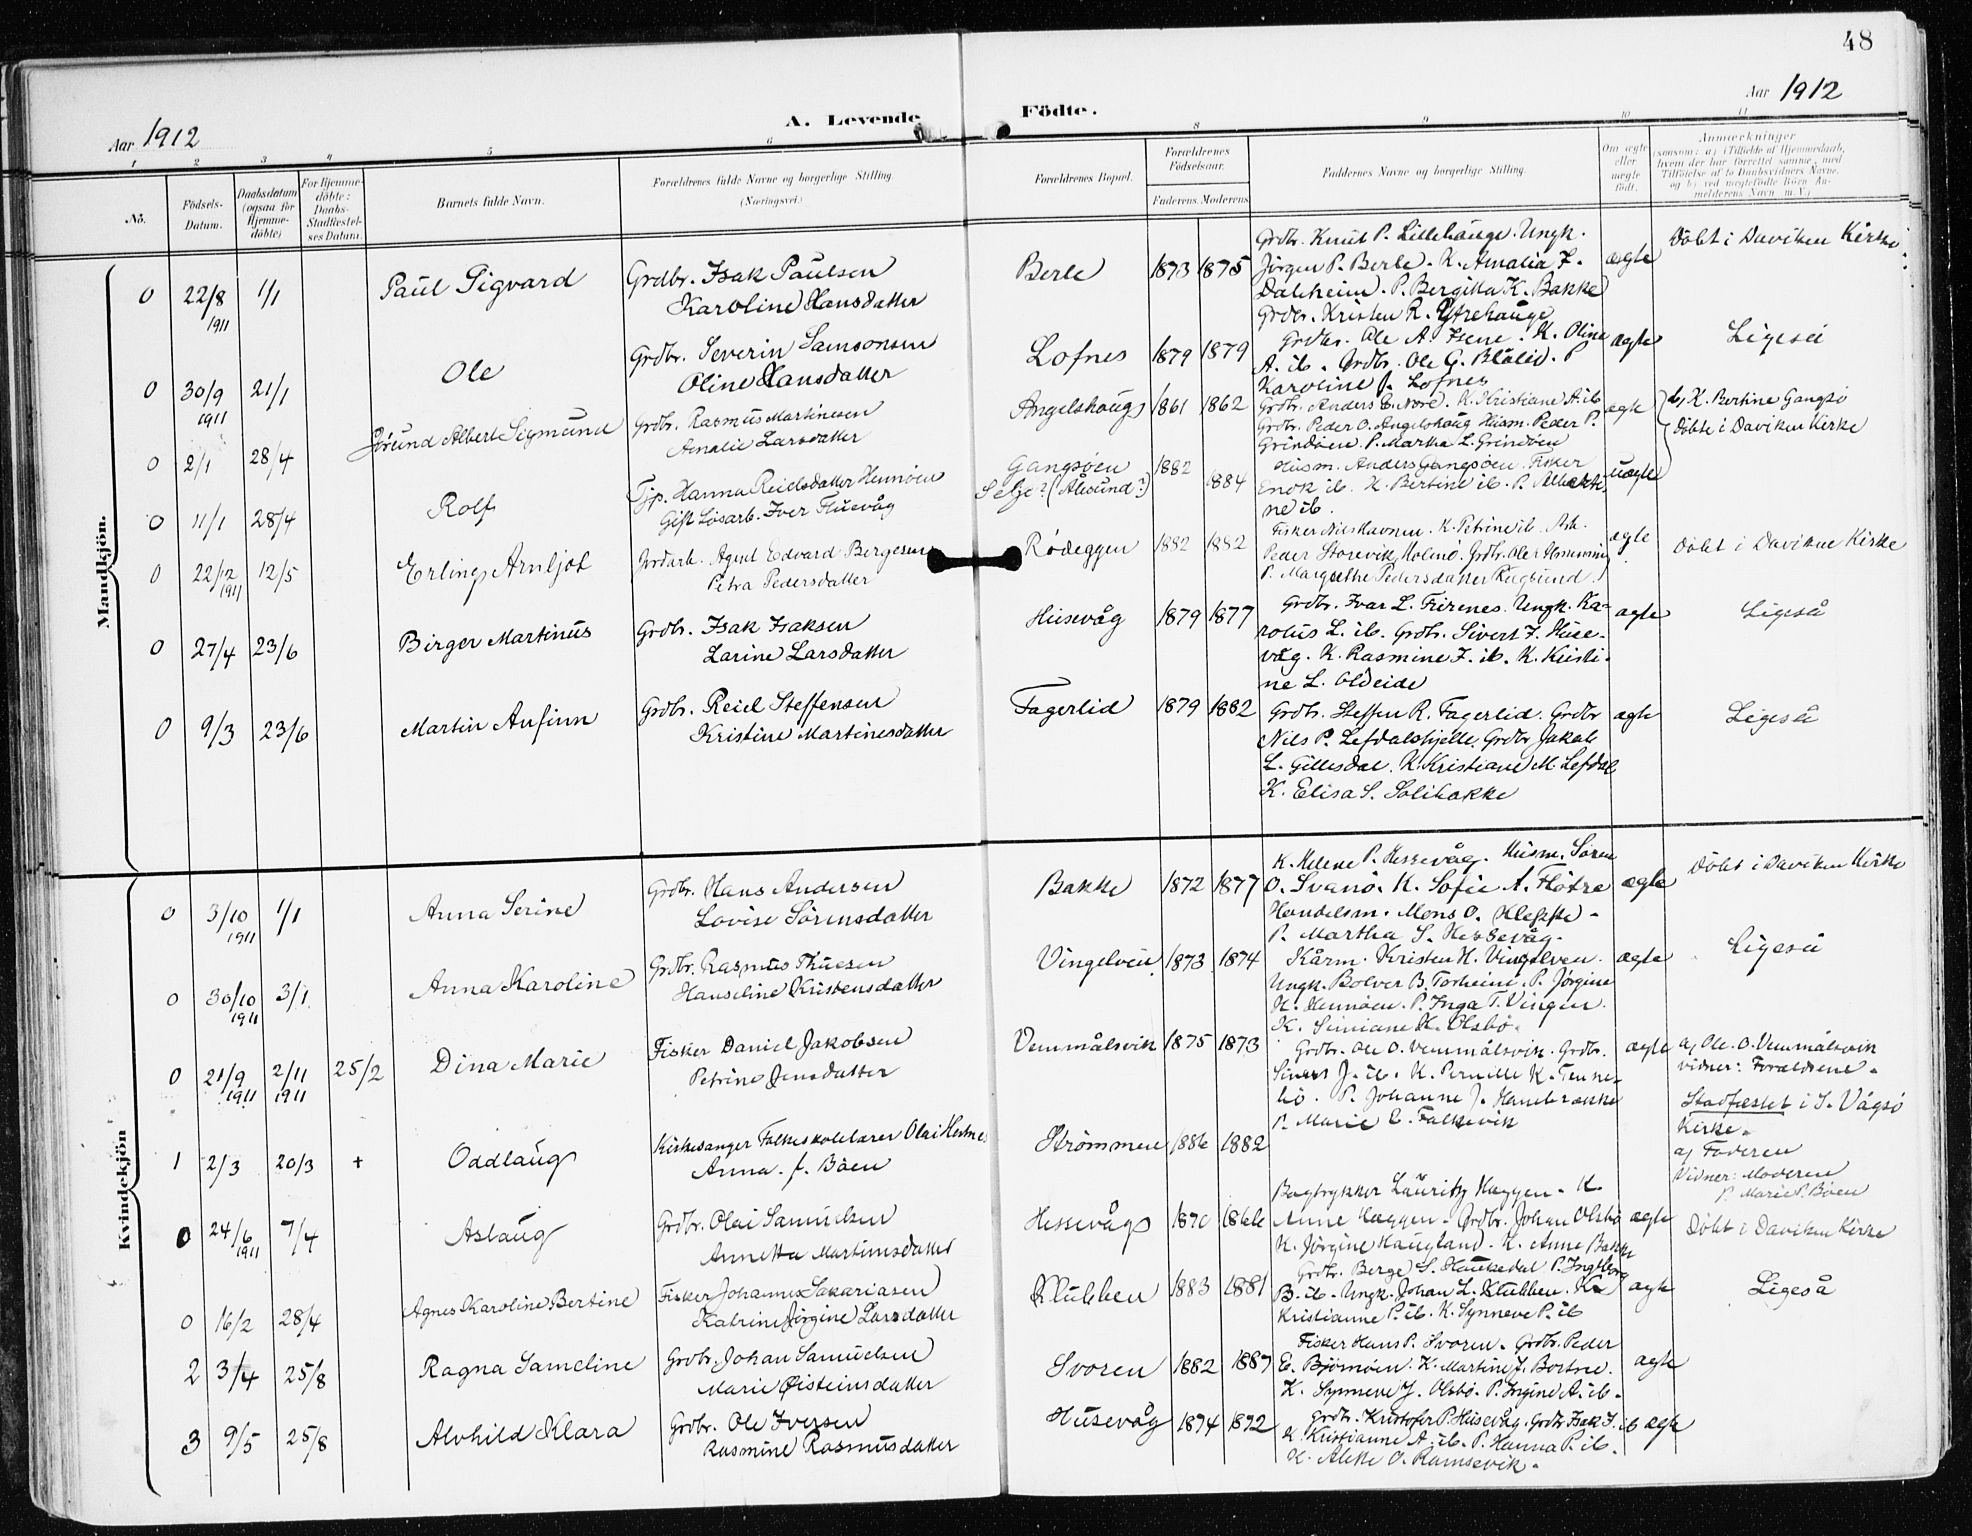 48
Aar 1912
A. Levende Födte.
Aar 1912
1 2 3 4 5 6 8 9 10 11
No.
Födsels-Datum.
Daabsdatum (ogsaa for Hjemme-döbte)
For Hjemme-döbte: Daabs-Stadfæstel-ses Datum.
Barnets fulde Navn.
Forældrenes fulde Navne og borgerlige Stilling.
(Næringsvei.)
Forældrenes Bopæl.
Forældrenes Födselsaar.
Faderens. Moderens.
Faddernes Navne og borgerlige Stilling.
Om ægte eller uægte födt.
Anmærkninger
(saasom: a) i Tilfælde af Hjemmedaab, hvem der har forrettet samme, med Tilföielse af to Daabsvidners Navne, og b) ved uægtefödte Börn Anmelderens Navn m. V.)
Mandkjön.
0 22/8 1911 1/1 Paul Sigvard
Grdbr. Isak Paulsen
Karoline Hansdatter
Berle 1873 1875
Grdbr. Knut P. Lillehauge. Ungk.
Jörgen P. Berle. K. Amalia J.
Dalsheim. P. Bergitta K. Bakke
Grdbr. Kristen R. Ytrehauge
ægte Döbt i Daviken Kirke
0 30/9 1911 21/1 Ole
Grdbr. Severin Samsonsen
Oline Hansdatter
Lofnes 1879 1879
Grdbr. Ole A. Isene. K. Oline
A. ib. Grdbr. Ole G. Blålid. P
Karoline J. Lofnes
ægte Ligeså
0 2/1 28/4 Jörund Albert Sigmund
Grdbr. Rasmus Martinesen
Amalie Larsdatter
Angelshaug 1861 1862
Grdbr. Anders E. Nore. K. Kristiane A. ib
Grdbr. Peder O. Angelshaug Husm. Peder P.
Grindöien. P. Martha L. Grindöen
ægte
b, K. Bertine Gangsö
Döbte i Daviken Kirke
0 11/1 28/4 Rolf
Tjp. Hanna Reielsdatter Hennöen
Gift Lösarb. Iver Husevåg
Gangsöen 1882
Selje? (Ålesund?) 1884
Husm. Anders Gangsöen. Fisker
Enok ib. K. Bertine ib. P.
ne ib.
uægte
0 22/12 1911 12/5 Erling Arnljot
Jordarb. Agent Edvard Bergesen
Petra Pedersdatter
Rödeggen 1882 1882
Fisker Nils Havnen. K. Petrine ib. Arb.
Peder Storevik, Holmö. Grdbr. Ole
P. Margrethe Pedersdatter Rugsund.
ægte Döbt i Daviken Kirke
0 27/4 23/6 Birger Martinus
Grdbr. Isak Isaksen
Larine Larsdatter
Husevåg 1879 1877
Grdbr. Ivar L. Turenes. Ungk. Ka-
rolus L. ib. Grdbr. Sivert J. Huse-
våg. K. Rasmine I. ib. K. Kristi-
ne L. Oldeide
ægte Ligeså
0 9/3 23/6 Martin Anfinn
Grdbr. Reiel Steffensen
Kristine Martinesdatter
Fagerlid 1879 1882
Grdbr. Steffen R. Fagerlid. Grdbr
Nils P. Lefdalskjelle. Grdbr Jakob
L. Gillesdal. K. Kristiane M. Lefdal
K. Elisa S. Solibakke
ægte Ligeså
Kvindekjön
0 3/10 1911 1/1 Anna Serine
Grdbr. Hans Andersen
Lovise Sörensdatter
Bakke 1872 1877
K. Helene P. Hessevåg. Husm. Sören
O. Svanö. K. Sofie A. Flötre
Handelsm. Mons O. Kleppe.
P. Martha S. Hessevåg.
ægte Döbt i Daviken Kirke
0 30/10 1911 3/1 Anna Karoline
Grdbr. Rasmus Thuesen
Hanseline Kristensdatter
Vingelven 1873 1874
Kårm. Kristen H. Vingelven.
Ungk. Bolver B. Torheim. P. Jörgine
H. Hennöen. P. Inga T. Vingen.
K. Simiane K. Olsbö.
ægte Ligeså
0 21/9 1911 2/11 1911 25/2 Dina Marie
Fisker Daniel Jakobsen
Petrine Jensdatter
Vemmålsvik 1875 1873
Grdbr. Ole O. Vemmålsvik. Grdbr.
Sivert J. ib. K. Pernille K. Tenne-
bö. P. Johanne J. Hambrække
P. Marie E. Falkevik
ægte
a, Ole. O. Vemmålsvik
vidner: Forældrene.
Stadfæstet i S. Vågsö
Kirke.
1 2/3 20/3 + Oddlaug
Kirkesanger Folkeskolelærer Olai Hesnes
Anna J. Böen
Strömmen 1886 1882
a, Faderen
Vidner: Moderen
P. Marie P. Böen
0 24/6 1911 7/4 Aslaug
Grdbr. Olai Samuelsen
Annetta Martinusdatter
Hessevåg 1870 1866
Bogtrykker Lauritz Haggen. K
Anne Haggen. Grdbr. Johan Olsbö
K. Jörgine Haugland. K. Anne Bakke
ægte Döbt i Daviken Kirke
0 16/2 28/4 Agnes Karoline Bertine
Fisker Johannes Sakariasen
Katrine Jörgine Larsdatter
Klubben 1883 1881
Grdbr. Berge S. Haukedal P. Ingeborg
B. ib. Ungk. Johan L. Klubben. K
Kristianne P. ib. K. Synneve P. ib
ægte Ligeså
2 3/4 25/8 Ragna Sameline
Grdbr. Johan Samuelsen
Marie Öisteinsdatter
Svoren 1882 1887
Fisker Hans P. Svoren. Grdbr. Peder
E. Björnöen. K. Martine J. Bortne.
K. Synneve J. Olsbö. P. Ingine A. ib.
ægte
3 9/5 25/8 Alvhild Klara
Grdbr. Ole Iversen
Rasmine Rasmusdatter
Husevåg 1874 1872
Grdbr. Kristofer P. Husevåg. Grdbr. Isak I. ib
K. Kristianne A. ib. P. Hanna P. ib.
K. Alette O. Ramsevik.
ægte